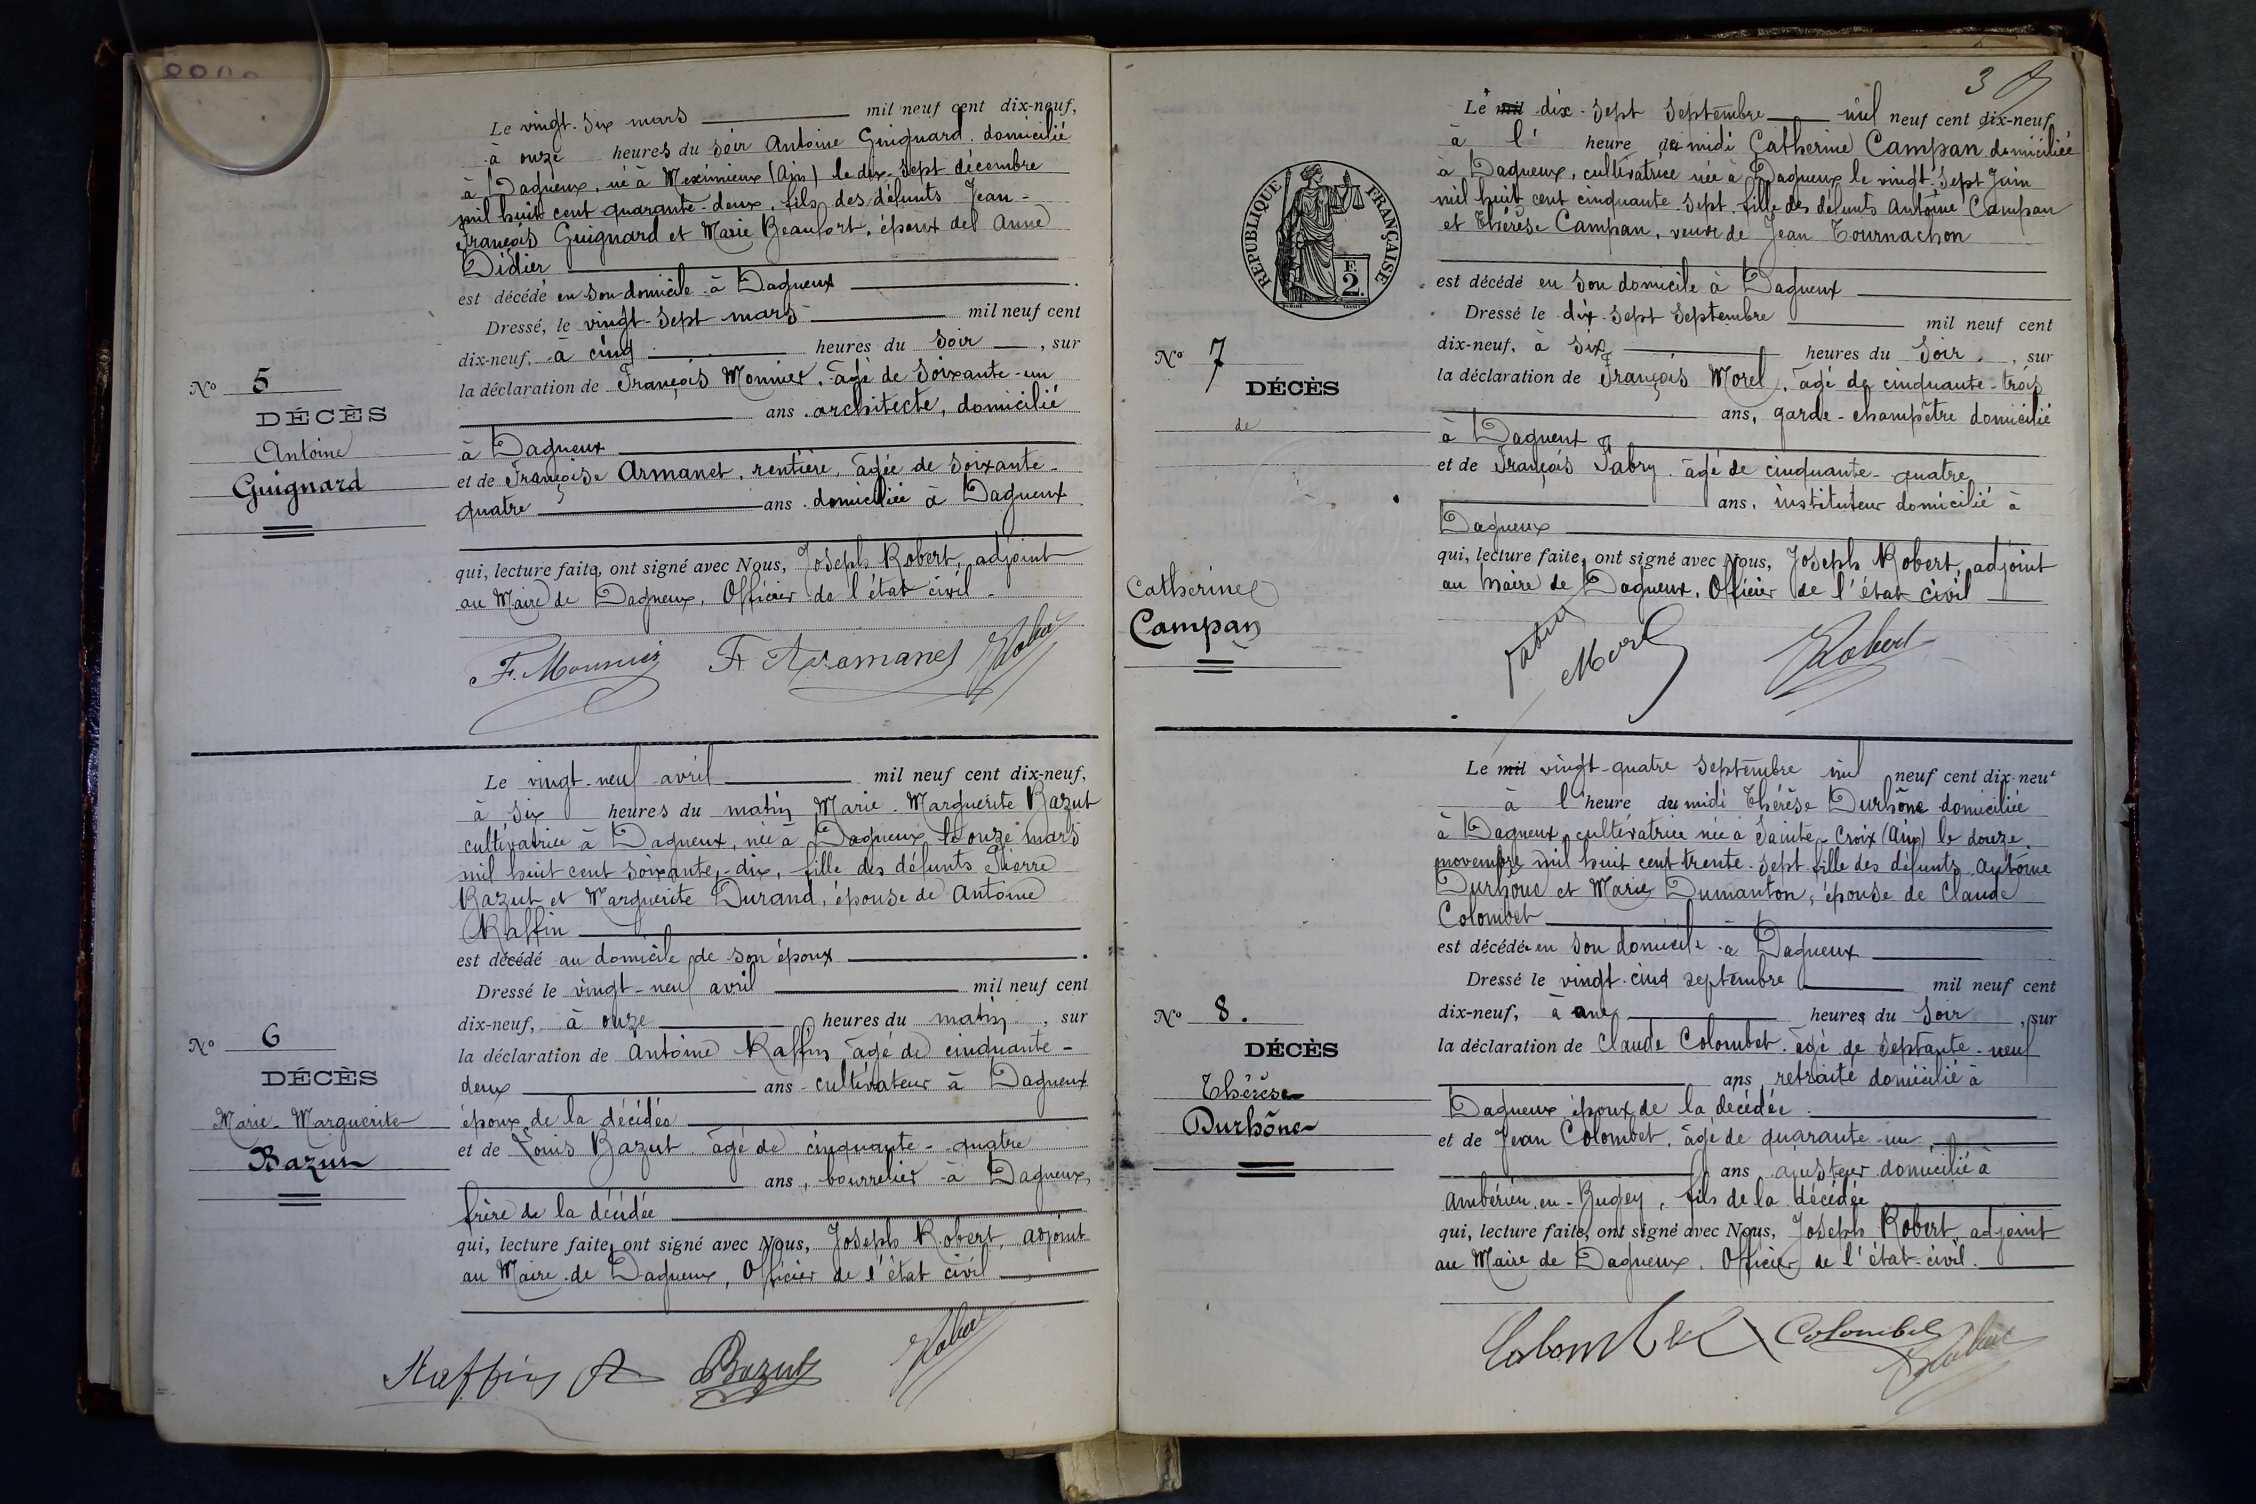 Le vingt-six mars mil neuf cent dix-neuf,
à onze heures du soir Antoine Guignard domicilié
à Dagneux, né à Meximieux (Ain) le dix-sept décembre
mil huit cent quarante-deux, fils des défunts Jean-
François Guignard et Marie Beaufort, époux de Anne
Didier
est décédé en son domicile à Dagneux
Dressé, le vingt-sept mars mil neuf cent
dix-neuf, à cinq heures du soir, sur
la déclaration de François Monnier, âgé de soixante-un
ans architecte, domicilié
à Dagneux
et de Françoise Armanet, rentière, âgée de soixante-
quatre ans domiciliée à Dagneux
qui, lecture faite, ont signé avec Nous, Joseph Robert, adjoint
au Maire de Dagneux, Officier de l'état civil
F. Monnier F Armanet Robert
No 5
DÉCÈS
Antoine
Guignard
Le vingt-neuf avril mil neuf cent dix-neuf,
à six heures du matin Marie-Marguerite Bazut
cultivatrice à Dagneux, née à Dagneux le onze mars
mil huit cent soixante-dix, fille des défunts Pierre
Bazut et Marguerite Durand, épouse de Antoine
Raffin
est décédé au domicile de son époux
Dressé le vingt-neuf avril mil neuf cent
dix-neuf, à onze heures du matin, sur
la déclaration de Antoine Raffin, âgé de cinquante-
deux ans cultivateur à Dagneux
époux de la décédée
et de Louis Bazut âgé de cinquante-quatre
ans, bourrelier à Dagneux,
frère de la décédée
qui, lecture faite, ont signé avec Nous, Joseph Robert, adjoint
au Maire de Dagneux, Officier de l'état civil
Raffin A Bazut Robert
No 6
DÉCÈS
Marie-Marguerite
Bazut
3
Le mil dix-sept Septembre mil neuf cent dix-neuf
à l' heure de midi Catherine Campan domiciliée
à Dagneux, cultivatrice née à Dagneux le vingt-sept Juin
mil huit cent cinquante-sept, fille des défunts Antoine Campan
et Thérèse Campan, veuve de Jean Tournachon
est décédé en son domicile à Dagneux
Dressé le dix-sept Septembre mil neuf cent
dix-neuf, à six heures du soir, sur
la déclaration de François Morel, âgé de cinquante-trois
ans, garde-champêtre domicilié
à Dagneux
et de François Fabry âgé de cinquante-quatre
ans, instituteur domicilié à
Dagneux
qui, lecture faite, ont signé avec Nous, Joseph Robert, adjoint
au Maire de Dagneux, Officier de l'état civil
Fabry Morel Robert
RÉPUBLIQUE FRANÇAISE
F.
2.
No 7
DÉCÈS
de
Catherine
Campan
Le mil vingt-quatre Septembre mil neuf cent dix-neuf
à l'heure de midi Thérèse Durhône domiciliée
à Dagneux, cultivatrice née à Sainte-Croix (Ain) le douze
novembre mil huit cent trente-sept fille des défunts Antoine
Durhône et Marie Dumanton, épouse de Claude
Colombet
est décédée en son domicile à Dagneux
Dressé le vingt-cinq septembre mil neuf cent
dix-neuf, à une heures du soir, sur
la déclaration de Claude Colombet, âgé de septante-neuf
ans retraité domicilié à
Dagneux, époux de la décédée
et de Jean Colombet, âgé de quarante-un
ans ajusteur domicilié à
Ambérieu-en-Bugey, fils de la décédée
qui, lecture faite, ont signé avec Nous, Joseph Robert, adjoint
au Maire de Dagneux, Officier de l'état-civil.
Colombet Colombet
Robert
No 8.
DÉCÈS
Thérèse
Durhône